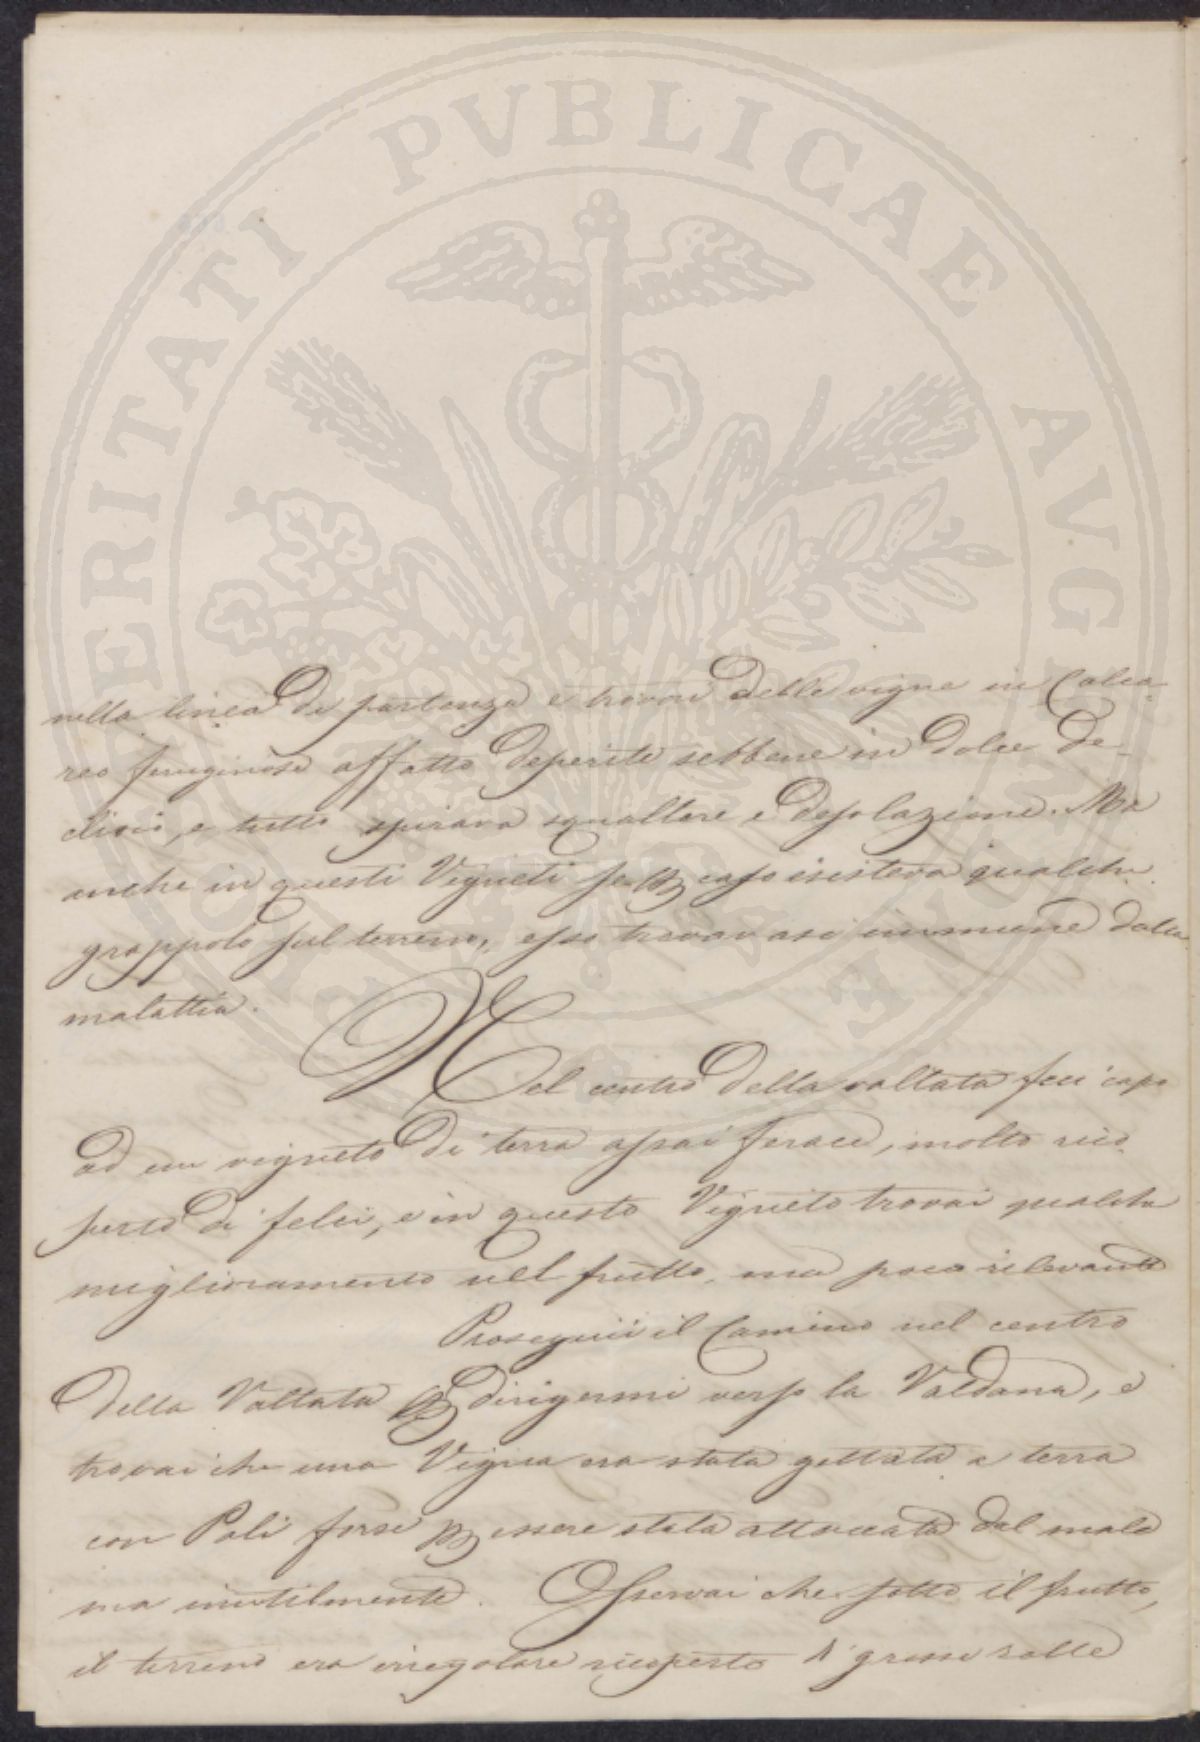 PVBLICAE
nella linea di partenza e trovai delle vigne in Calca-
reo feruginoso affatto deperite sebbene in dolce de-
clivio, e tutto spirava squallore e desolazione. Ma
anche in questi Vigneti se p caso esisteva qualche
grappolo sul terreno, esso trovavasi immune dalla
malattia.
Nel centro della vallata feci capo
ad un vigneto di terra assai ferace, molto rico-
perto di felci, e in questo Vigneto trovai qualche
miglioramento nel frutto, ma poco rilevante
Proseguii il Camino nel centro
della Vallata p dirigermi verso la Valdana, e
trovai che una Vigna era stata gettata a terra
con Pali forse p essere stata attaccata dal male
ma inutilmente. Osservai che sotto il frutto,
il terreno era irregolare ricoperto di grosse zolle